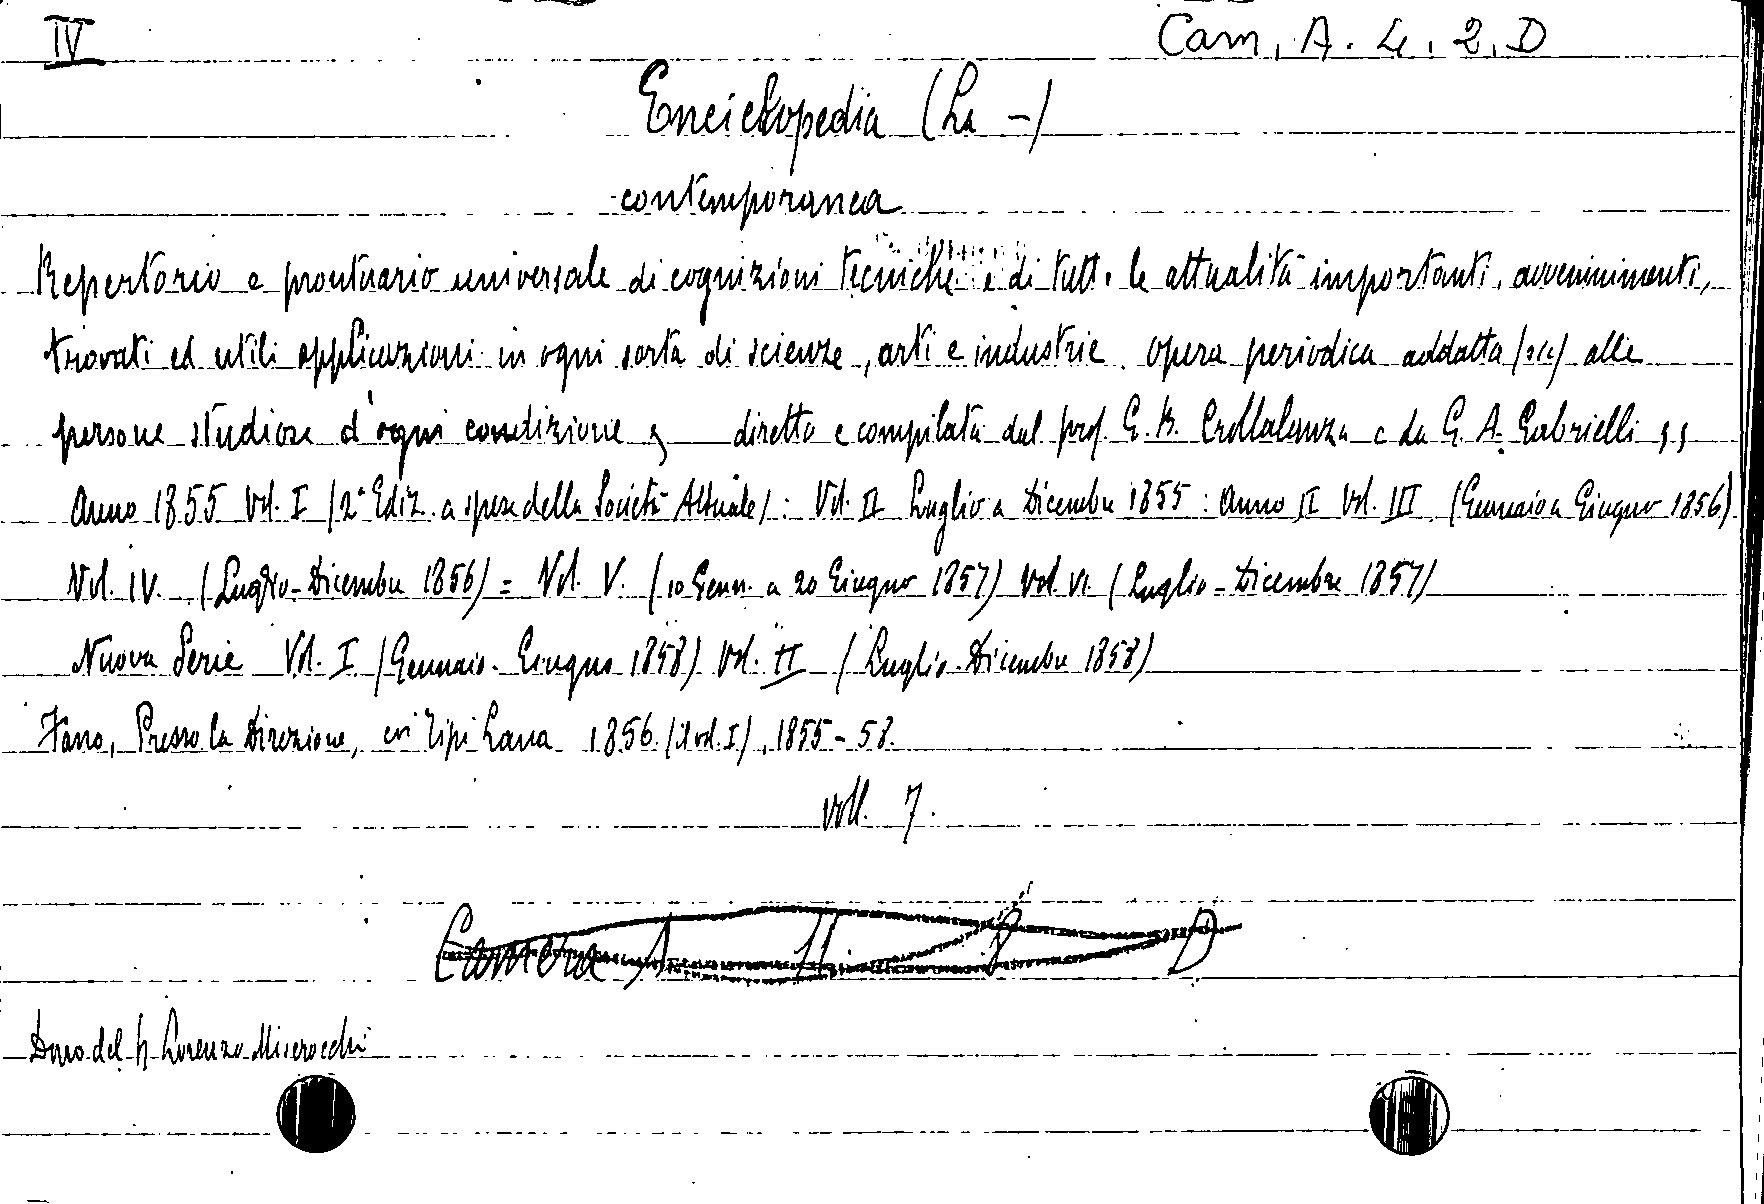 IV
Cam. A. 4. 2. D
Enciclopedia (La -)
contemporanea
Repertorio e prontuario universale di cognizioni tecniche e di tutte le attualità importanti, avvenimenti,
trovati ed utili applicazioni in ogni sorta di scienze, arti e industrie. Opera periodica addatta (sic) alle
persone studiose d'ogni condizione, diretta e compilata dal prof. G. B. Crollalanza e da G. A. Gabrielli
Anno 1855 Vol. I (2ª Ediz. a spese della Società Attuale): Vol. II Luglio a Dicembre 1855: Anno II Vol. III (Gennaio a Giugno 1856)
Vol. IV. (Luglio-Dicembre 1856) = Vol. V. (10 Genn. a 20 Giugno 1857) Vol. VI. (Luglio-Dicembre 1857)
Nuova Serie Vol. I (Gennaio-Giugno 1858) Vol. II (Luglio-Dicembre 1858)
Fano, Presso la Direzione, coi Tipi Lana 1856 (il vol. I), 1855-58.
voll. 7.
Camera A D
Dono del Lorenzo Miserocchi